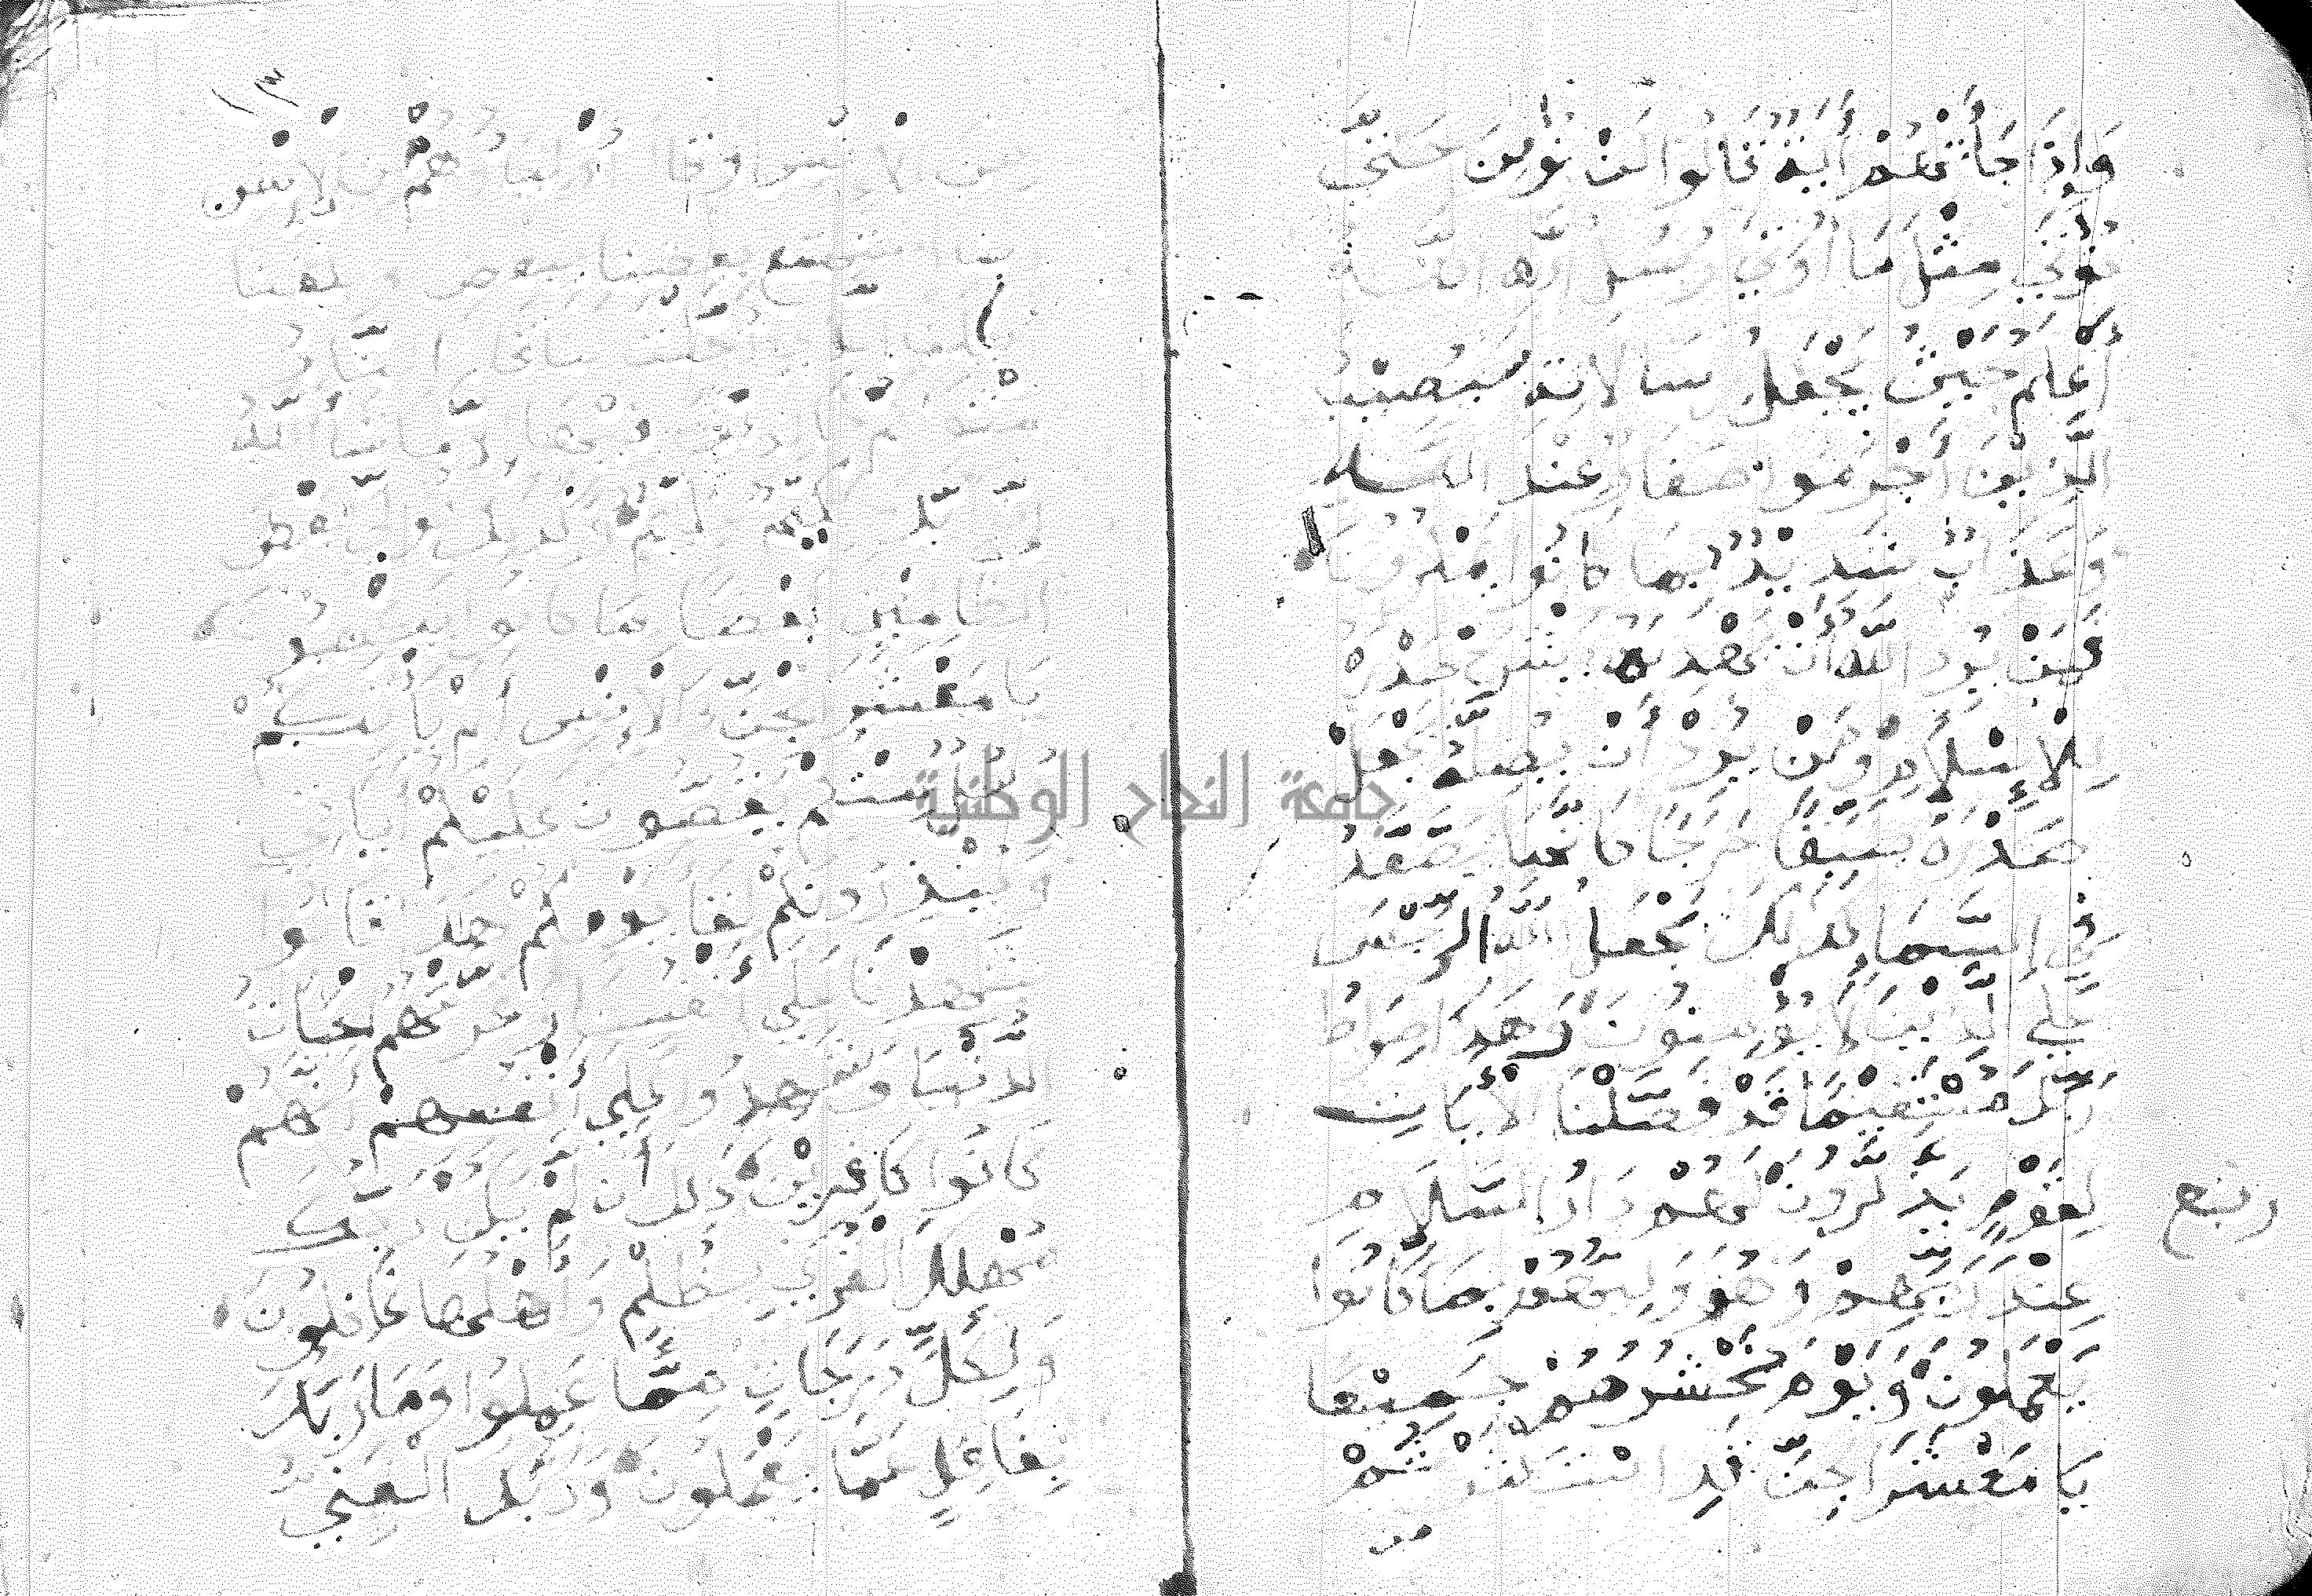 وَإِذَا جَأَتْهُمْ أَيَةٌ قَالُوا لَنْ نُؤْمِنَ حَتَّي
نُؤْتَي مِثْلَ مَا أُوتِيَ رُسُلُ اللَّه اللَّهُ
أَعْلَمُ حَيْثُ يَجْعَلُ رِسَالَاتِه سَيُصِيْبُ
الَّذِيْنَ أَجْرَمُوا صَغَارٌ عِنْدَ اللَّه
وَعَذَابٌ شَدِيْدٌ بِمَا كَانُوا يَمْكُرُونَ
فَمَنْ يُرِدِ اللَّهُ أَنْ يَهْدِيَهُ يَشْرَحْ صَدْرَهُ
لِلْإِسْلَامِ وَمَنْ يُرِدْ أَنْ يُضِلَّهُ يَجْعَلْ
صَدْرَهُ ضَيِّقًا حَرَجًا كَأَنَّمَا يَصَّعَّدُ
فِي السَّمَاءِ كَذَلِكَ يَجْعَلُ اللَّهُ الرِّجْسَ
عَلَي الَّذِيْنَ لَا يُؤْمِنُونَ وَهَذَا صِرَاطُ
رَبِّكَ مُسْتَقِيْمًا قَدْ فَصَّلْنَا الْأَيَاتِ
لِقَوْمٍ يَذَّكَّرُونَ لَهُمْ دَارُ السَّلَامِ
عِنْدَ رَبِّهِمْ وَهُوَ وَلِيُّهُمْ بِمَا كَانُوا
يَعْمَلُونَ وَيَوْمَ نَحْشُرُهُمْ جَمِيْعًا
يَا مَعْشَرَ الْجِنِّ قَدِ اسْتَكْثَرْتُمْ
من
ربع
١٣
مِنَ الْإِنْسِ وَقَالَ أَوْلِيَاؤُهُمْ مِنَ الْإِنْسِ
رَبَّنَا اسْتَمْتَعَ بَعْضُنَا بِبَعْضٍ وَبَلَغْنَا
أَجَلَنَا الَّذِي أَجَّلْتَ لَنَا قَالَ النَّارُ
مَثْوَاكُمْ خَالِدِيْنَ فِيْهَا إِلَّا مَا شَأَ اللَّهُ
إِنَّ رَبَّكَ حَكِيْمٌ عَلِيْمٌ وَكَذَلِكَ نُوَلِّي بَعْضَ
الظَّالِمِيْنَ بَعْضًا بِمَا كَانُوا يَكْسِبُونَ
يَا مَعْشَرَ الْجِنِّ وَالْإِنْسِ أَلَمْ يَأْتِكُمْ
رُسُلٌ مِنْكُمْ يَقُصُّونَ عَلَيْكُمْ أَيَاتِي
وَيُنْذِرُونَكُمْ لِقَاءَ يَوْمِكُمْ هَذَا قَالُوا
شَهِدْنَا عَلَي أَنْفُسِنَا وَغَرَّتْهُمُ الْحَيَاةُ
الدُّنْيَا وَشَهِدُوا عَلَي أَنْفُسِهِمْ أَنَّهُمْ
كَانُوا كَافِرِيْنَ ذَلِكَ أَنْ لَمْ يَكُنْ رَبُّكَ
مُهْلِكَ الْقُرَي بِظُلْمٍ وَأَهْلُهَا غَافِلُونَ
وَلِكُلٍّ دَرَجَاتٌ مِمَّا عَمِلُوا وَمَا رَبُّكَ
بِغَافِلٍ عَمَّا يَعْمَلُونَ وَرَبُّكَ الْغَنِيُّ
جامعة النجاح الوطنية